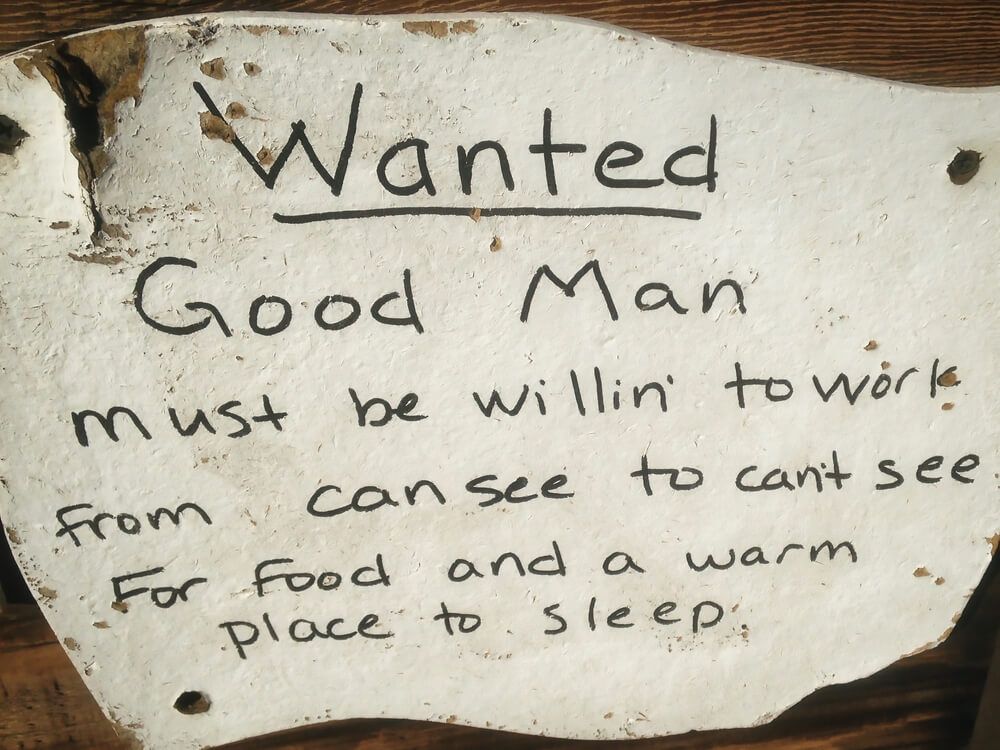 Wanted
Good Man
must be willin' to work
from can see to can't see.
For food and a warm
place to sleep.